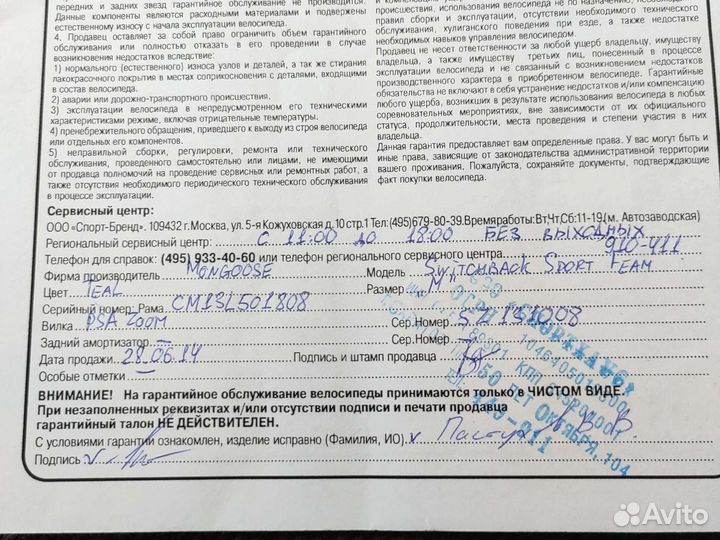 передних и задних звезд гарантийное обслуживание не производится.
Данные компоненты являются расходными материалами и подвержены
естественному износу с начала эксплуатации велосипеда.
4. Продавец оставляет за собой право ограничить объем гарантийного
обслуживания или полностью отказать в его проведении в случае
возникновения недостатков вследствие:
1) нормального (естественного) износа узлов и деталей, а так же стирания
лакокрасочного покрытия в местах соприкосновения с деталями, входящими
в состав велосипеда.
2) аварии или дорожно-транспортного происшествия.
3) эксплуатации велосипеда в непредусмотренном его техническими
характеристиками режиме, включая отрицательные температуры.
4) пренебрежительного обращения, приведшего к выходу из строя велосипеда
или отдельных его компонентов.
5) неправильной сборки, регулировки, ремонта или технического
обслуживания, проведенного самостоятельно или лицами, не имеющими
от продавца полномочий на проведение сервисных или ремонтных работ, а
также отсутствия необходимого периодического технического обслуживания
в процессе эксплуатации.
происшествия, использования велосипеда не по назначению,
правил сборки и эксплуатации, отсутствии необходимого технического
обслуживания, хулиганского поведения при езде, а также недостатке
необходимых навыков управления велосипедом.
Продавец не несет ответственности за любой ущерб владельцу, имуществу
владельца, а также имуществу третьих лиц, понесенный в процессе
эксплуатации велосипеда и не связанный с возникновением недостатков
производственного характера в приобретенном велосипеде. Гарантийные
обязательства не включают в себя устранение недостатков и/или компенсацию
любого ущерба, возникших в результате использования велосипеда в любых
соревновательных мероприятиях, вне зависимости от их официального
статуса, продолжительности, места проведения и степени участия в них
владельца.
Данная гарантия предоставляет вам определенные права. У вас могут быть и
иные права, зависящие от законодательства административной территории
вашего проживания. Пожалуйста, сохраняйте документы, подтверждающие
факт покупки велосипеда.
Сервисный центр:
ООО «Спорт-Бренд». 109432 г.Москва, ул. 5-я Кожуховская д.10 стр.1 Тел:(495)679-80-39.Время работы:Вт,Чт,Сб:11-19.(м. Автозаводская)
Региональный сервисный центр: с 11:00 до 18:00 БЕЗ ВЫХОДНЫХ
Телефон для справок: (495) 933-40-60 или телефон регионального сервисного центра 910-411
Фирма производитель MONGOOSE Модель SWITCHBACK SPORT FEAM
Цвет TEAL Размер M
Серийный номер: Рама CM13L501808
Вилка PSA ZOOM Сер.Номер SZ131008
Задний амортизатор — Сер.Номер —
Дата продажи 28.06.14 Подпись и штамп продавца
Особые отметки —
ВНИМАНИЕ! На гарантийное обслуживание велосипеды принимаются только в ЧИСТОМ ВИДЕ.
При незаполненных реквизитах и/или отсутствии подписи и печати продавца
гарантийный талон НЕ ДЕЙСТВИТЕЛЕН.
С условиями гарантии ознакомлен, изделие исправно (Фамилия, ИО) v
Подпись v
50 ЛЕТ ОКТЯБРЯ, 104
Avito